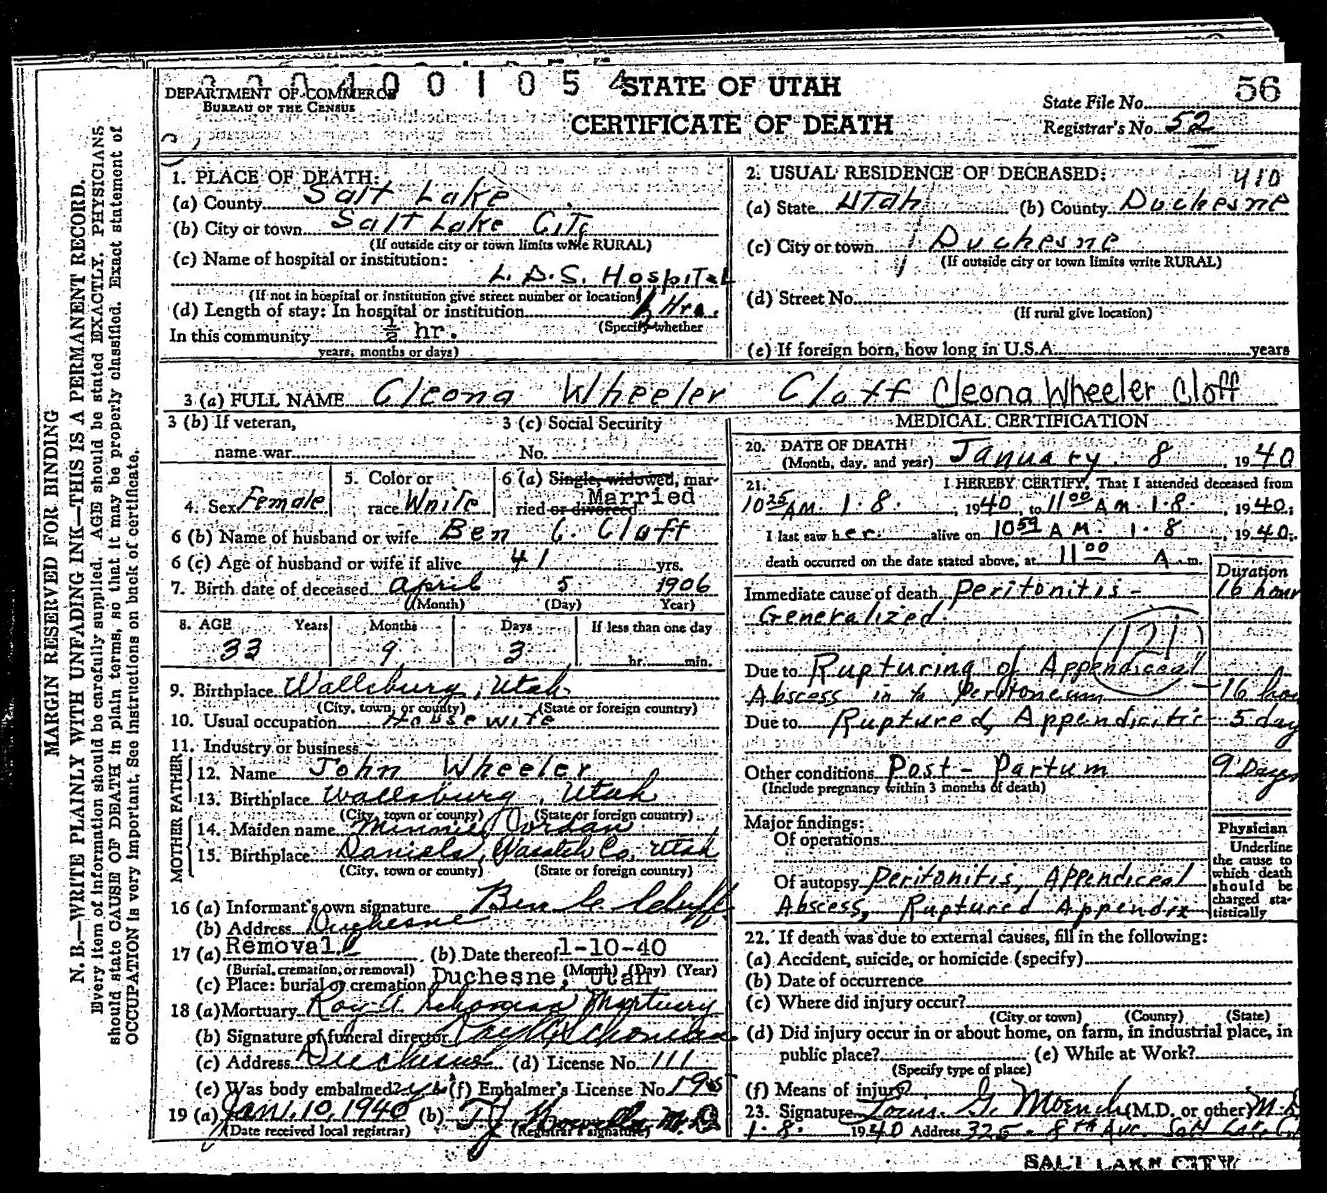 MARGIN RESERVED FOR BINDING
N. B.—WRITE PLAINLY WITH UNFADING INK—THIS IS A PERMANENT RECORD.
Every item of information should be carefully supplied. AGE should be stated EXACTLY. PHYSICIANS
should state CAUSE OF DEATH in plain terms, so that it may be properly classified. Exact statement of
OCCUPATION is very important. See instructions on back of certificate.
DEPARTMENT OF COMMERCE
BUREAU OF THE CENSUS
STATE OF UTAH
CERTIFICATE OF DEATH
56
State File No.
Registrar's No. 52
1. PLACE OF DEATH:
(a) County Salt Lake
(b) City or town Salt Lake City
(If outside city or town limits write RURAL)
(c) Name of hospital or institution:
L. D. S. Hospital
(If not in hospital or institution give street number or location)
(d) Length of stay: In hospital or institution ½ Hrs.
(Specify whether
In this community ½ hr.
years, months or days)
2. USUAL RESIDENCE OF DECEASED: 410
(a) State Utah (b) County Duchesne
(c) City or town Duchesne
(If outside city or town limits write RURAL)
(d) Street No.
(If rural give location)
(e) If foreign born, how long in U.S.A. years
3 (a) FULL NAME Cleona Wheeler Cloff Cleona Wheeler Cloff
3 (b) If veteran,
name war
3 (c) Social Security
No.
4. Sex Female
5. Color or
race White
6 (a) Single, widowed, mar-
ried or divorced Married
6 (b) Name of husband or wife Ben C. Cloff
6 (c) Age of husband or wife if alive 41 yrs.
7. Birth date of deceased April 5 1906
(Month) (Day) Year)
8. AGE Years Months Days If less than one day
33 9 3 hr. min.
9. Birthplace Wallsburg, Utah
(City, town, or county) (State or foreign country)
10. Usual occupation Housewife
11. Industry or business
FATHER
12. Name John Wheeler
13. Birthplace Wallsburg, Utah
(City, town or county) (State or foreign country)
MOTHER
14. Maiden name Minnie Jordan
15. Birthplace Daniels, Wasatch Co, Utah
(City, town or county) (State or foreign country)
16 (a) Informant's own signature Ben C. Cluff
(b) Address Duchesne
17 (a) Removal (b) Date thereof 1-10-40
(Burial, cremation, or removal) (Month) (Day) (Year)
(c) Place: burial or cremation Duchesne, Utah
18 (a) Mortuary Roy A. Mortuary
(b) Signature of funeral director
(c) Address Duchesne (d) License No. 111
(e) Was body embalmed? yes (f) Embalmer's License No. 195
19 (a) Jan. 10, 1940 (b) M.D.
(Date received local registrar) (Registrar's signature)
MEDICAL CERTIFICATION
20. DATE OF DEATH
(Month, day, and year) January 8, 1940
21. I HEREBY CERTIFY, That I attended deceased from
10 35 AM 1·8·, 1940, to 11 00 AM 1·8·, 1940;
I last saw her alive on 10 59 AM 1·8, 1940;
death occurred on the date stated above, at 11 00 A m.
Duration
Immediate cause of death Peritonitis - 16 hour
Generalized.
121
Due to Rupturing of Appendiceal
Abscess in to Peritoneum 16 hou
Due to Ruptured Appendicitis 5 day
Other conditions Post-Partum 9 Days
(Include pregnancy within 3 months of death)
Major findings:
Of operations
Of autopsy Peritonitis, Appendiceal
Abscess, Ruptured Appendix
Physician
Underline
the cause to
which death
should be
charged sta-
tistically
22. If death was due to external causes, fill in the following:
(a) Accident, suicide, or homicide (specify)
(b) Date of occurrence
(c) Where did injury occur?
(City or town) (County) (State)
(d) Did injury occur in or about home, on farm, in industrial place, in
public place? (e) While at Work?
(Specify type of place)
(f) Means of injury
23. Signature Louis G. Moench (M.D. or other) M.D.
1·8· 1940 Address 325 - 8th Ave. Salt Lake C.
SALT LAKE CITY